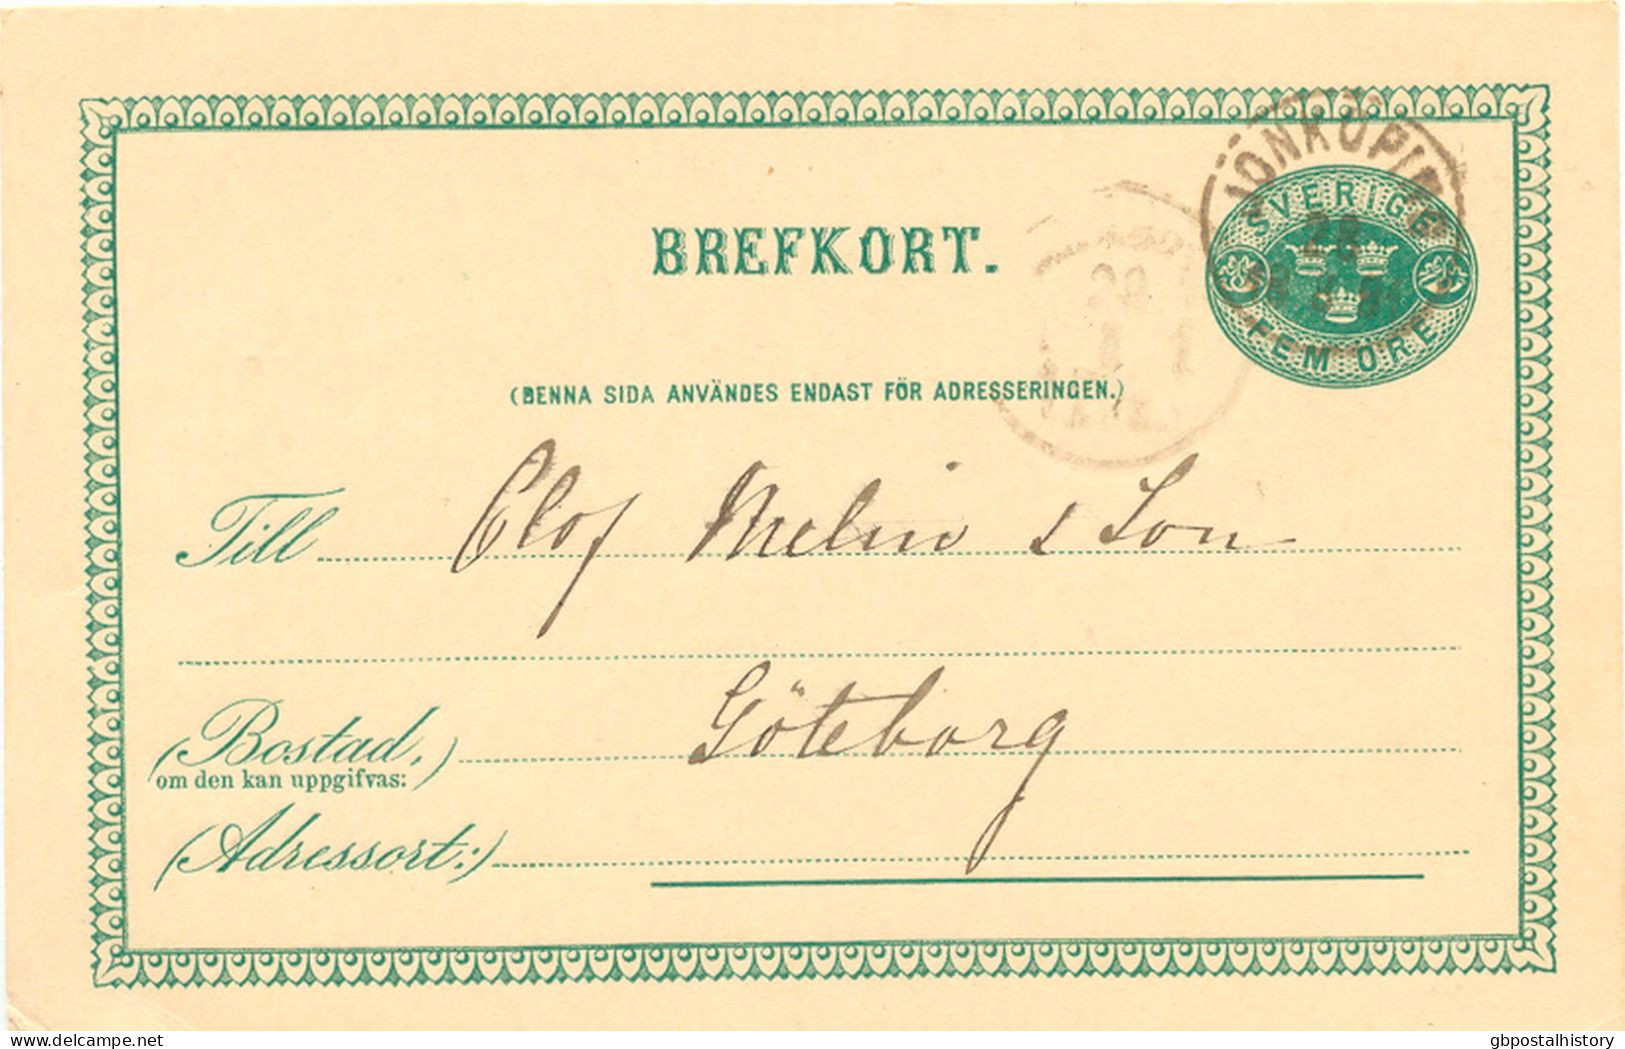 JÖNKÖPING
SVERIGE
FEM ÖRE
BREFKORT.
(DENNA SIDA ANVÄNDES ENDAST FÖR ADRESSERINGEN.)
Till Olof Melin & Son
Göteborg
(Bostad,)
om den kan uppgifvas:
(Adressort:)
delcampe.net
gbpostalhistory